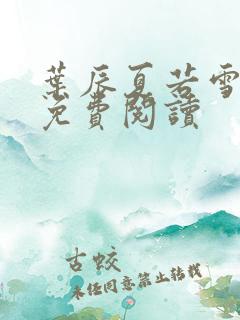 葉辰夏若雪
免費閱讀
古蛟
未经同意禁止转载